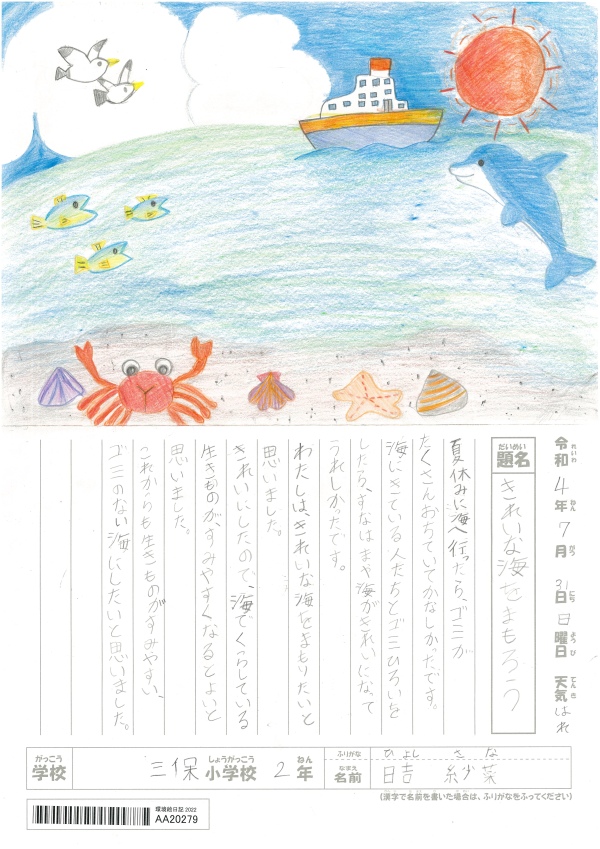 令和4年7月31日日曜日 天気はれ
れいわ ねん がつ にち ようび てんき
だいめい
題名 きれいな海をまもろう
夏休みに海へ行ったら、ゴミが
たくさんおちていてかなしかったです。
海にきている人たちとゴミひろいを
したら、すなはまや海がきれいになって
うれしかったです。
わたしは、きれいな海をまもりたいと
思いました。
きれいにしたので、海でくらしている
生きものが、すみやすくなるとよいと
思いました。
これからも生きものがすみやすい、
ゴミのない海にしたいと思いました。
がっこう しょうがっこう ねん
学校 三保小学校 2年
ふりがな ひよし さな
なまえ
名前 日吉 紗菜
(漢字で名前を書いた場合は、ふりがなをふってください)
環境絵日記2022
AA20279